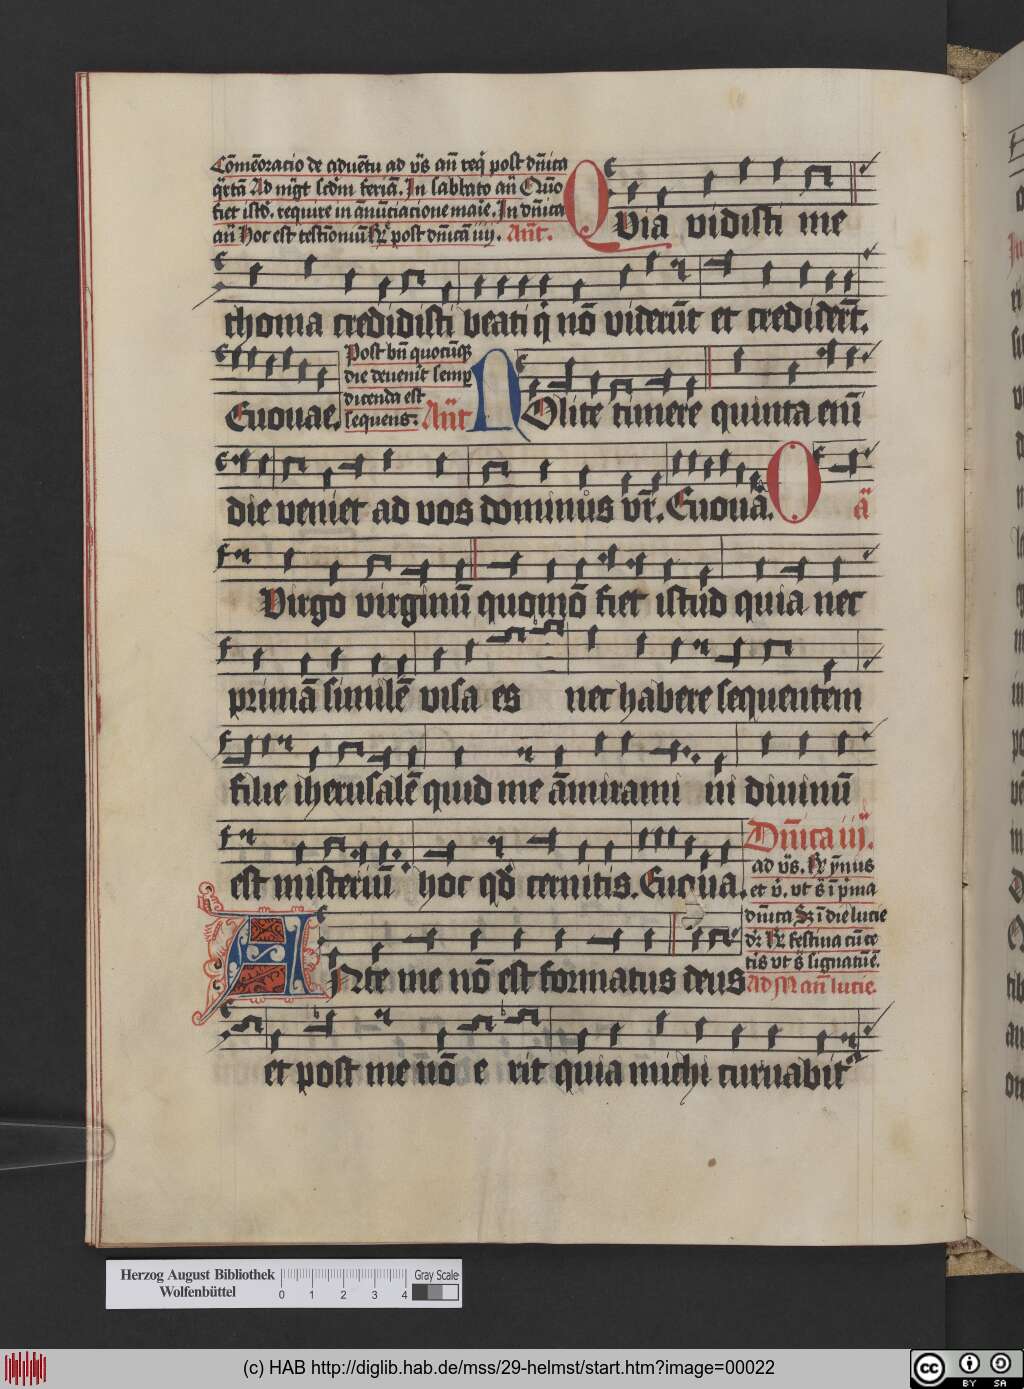 Cōmēoracio de aduētu ad vs̄ an̄ req̇ post dn̄ica
q̇rtā Ad mgt̄ scdm̄ feriā. In sabbato an̄ Quō
fiet istd̄. require in ānūciacione maīe. In dn̄ica
an̄ Hoc est testīoniū post dn̄icā iiij. Ant̄.
QVia vidisti me
thoma credidisti beati q̇ nō viderūt et credidert̄.
Post bn̄ quocūq
die deuenit semp
dicenda est
sequens: Ant̄
Euouae. NOlite timere quinta enī
die veniet ad vos dominus vr̄. Euouā. O ā
Virgo virginū quomō fiet istud quia nec
primā similē visa es nec habere sequentem
filie iherusalē quid me āmirami ni diuinū
Dn̄ica iij.
est misteriū hoc qd̄ cernitis. Euoua.
ad vs̄. ẏnus
et v̇. vt s̄ ī pīma
dn̄ica ī die lucie
festina cū ce
tīs vt s̄ signatuē.
Ad M an̄ lucie.
ANte me nō est formatus deus
et post me nō e rit quia michi curuabit
Herzog August Bibliothek
Wolfenbüttel
0 1 2 3 4
Gray Scale
(c) HAB http://diglib.hab.de/mss/29-helmst/start.htm?image=00022
cc BY SA